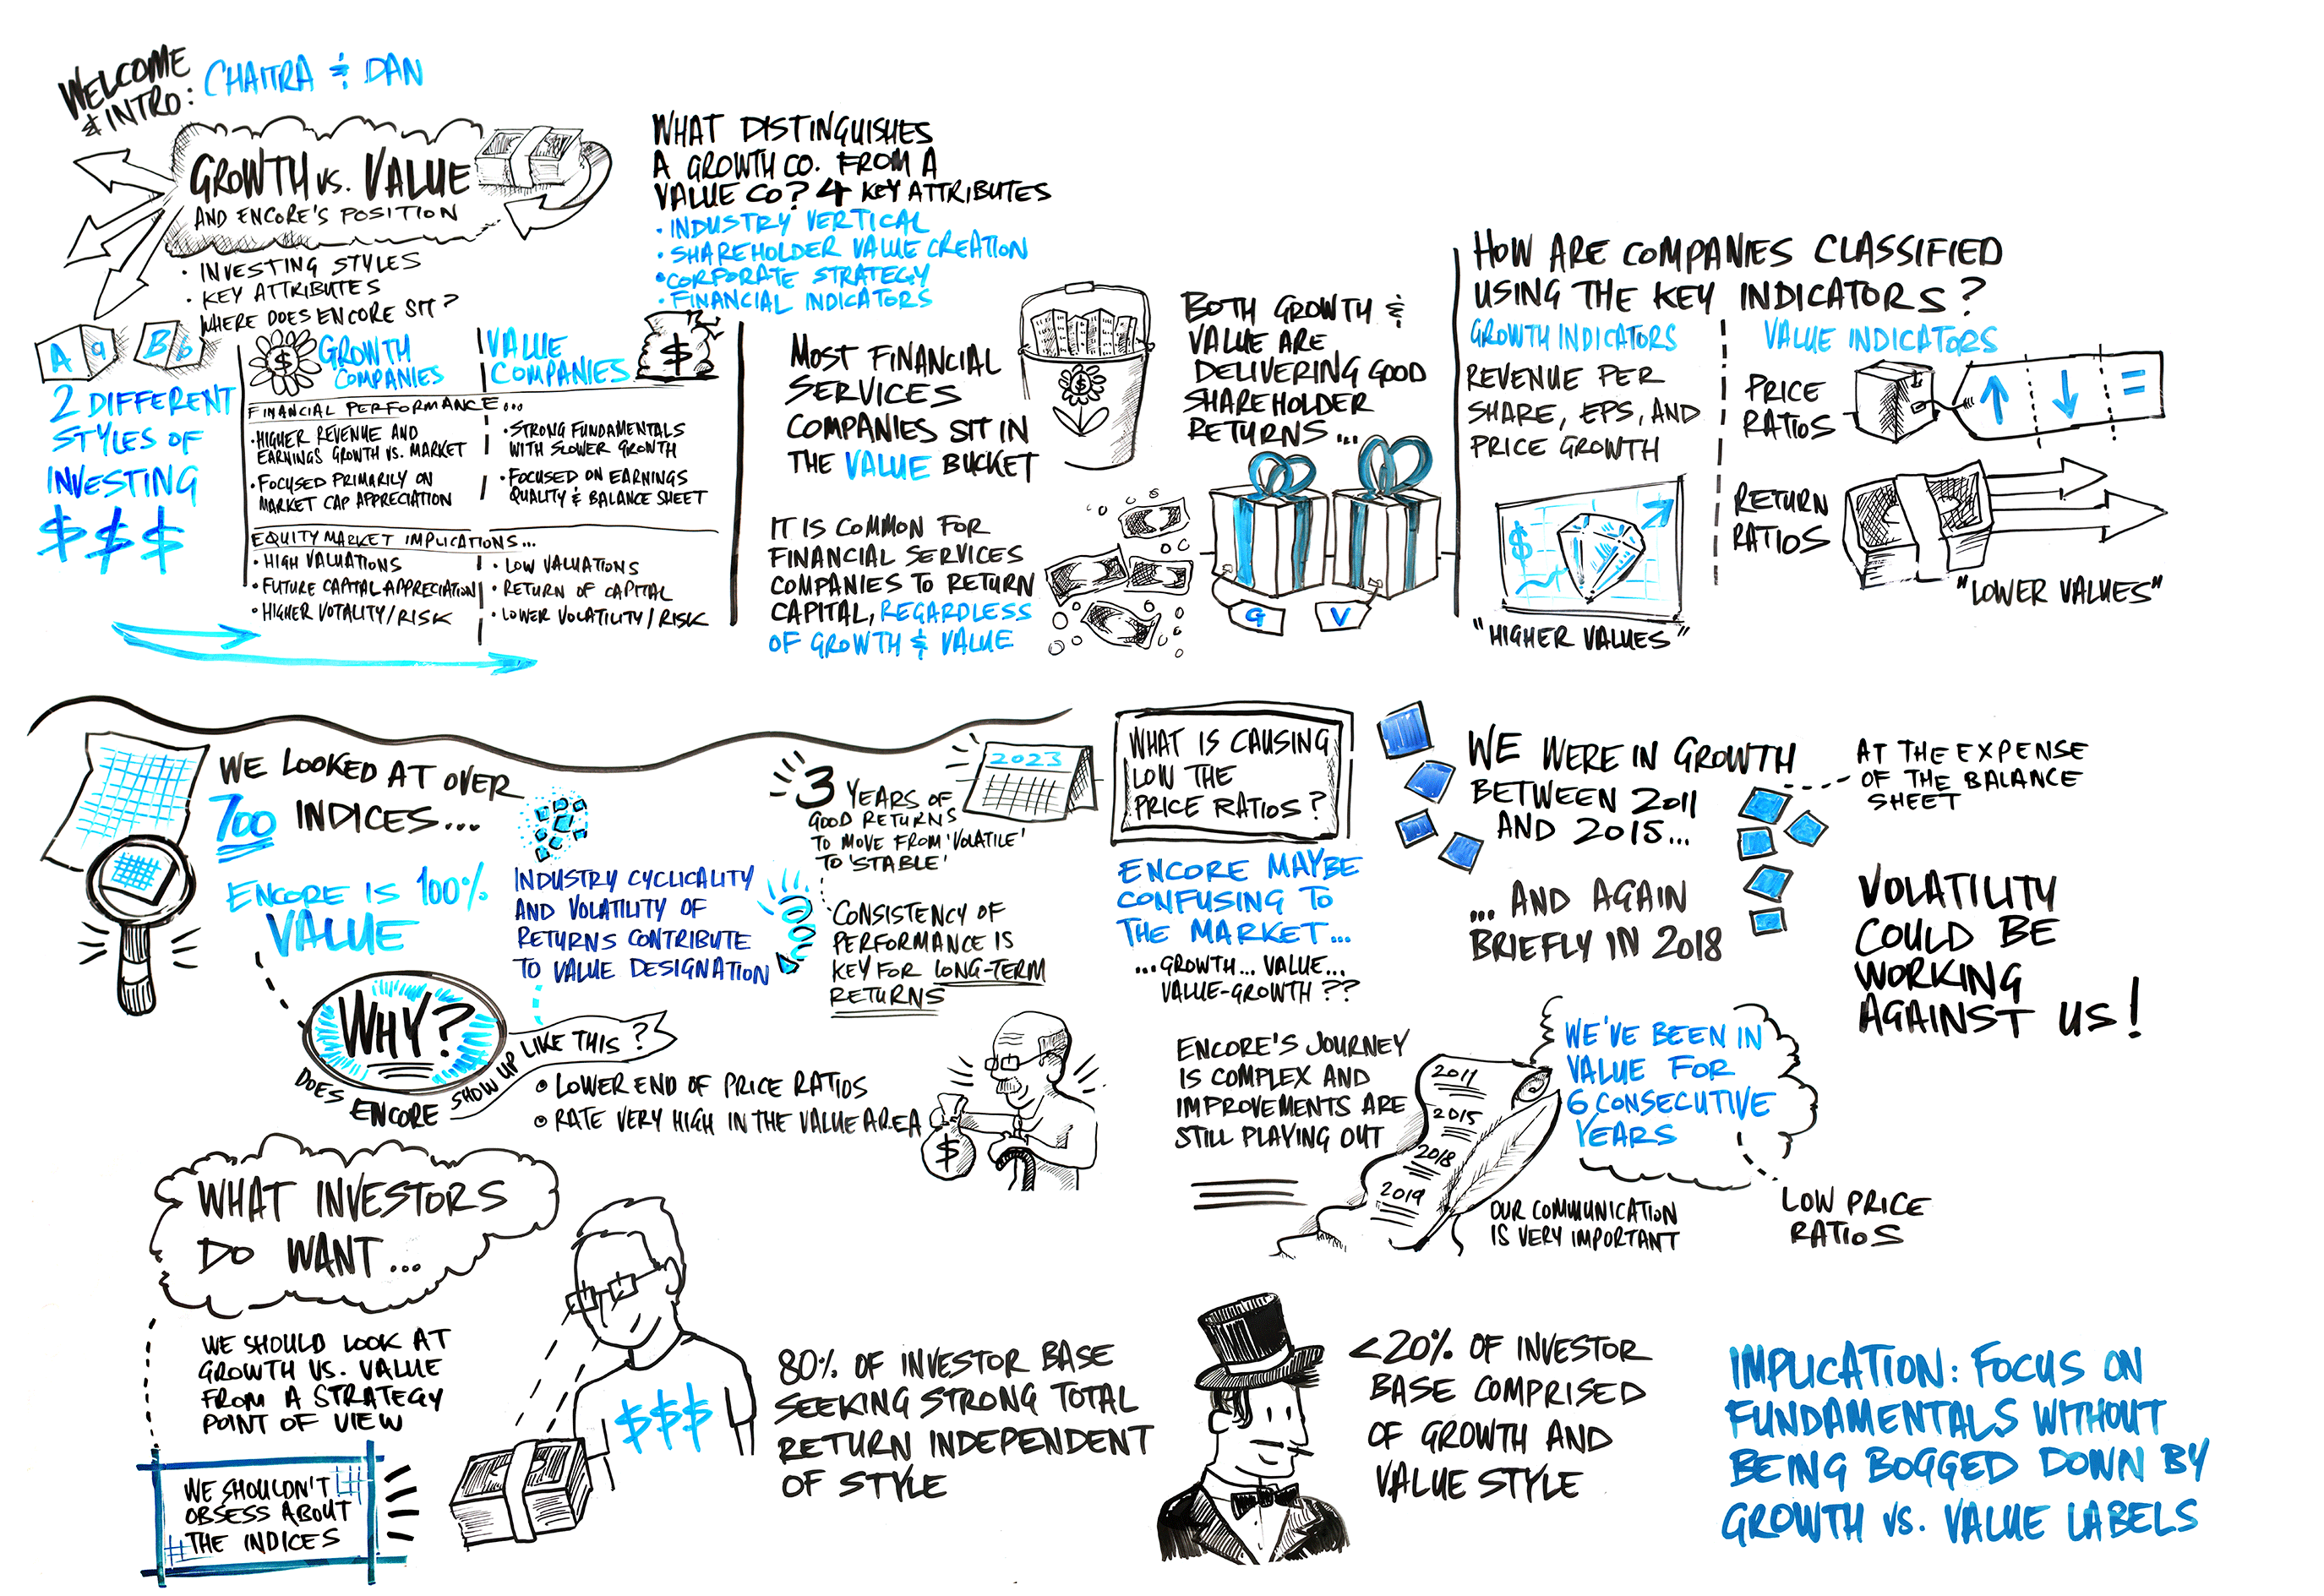 WELCOME
& INTRO:
CHAITRA & DAN
GROWTH vs. VALUE
AND ENCORE'S POSITION
• INVESTING STYLES
• KEY ATTRIBUTES
• WHERE DOES ENCORE SIT?
A a B b
2 DIFFERENT
STYLES OF
INVESTING
$$$
$ GROWTH
COMPANIES
VALUE
COMPANIES
$
FINANCIAL PERFORMANCE...
• HIGHER REVENUE AND
EARNINGS GROWTH VS. MARKET
• FOCUSED PRIMARILY ON
MARKET CAP APPRECIATION
• STRONG FUNDAMENTALS
WITH SLOWER GROWTH
• FOCUSED ON EARNINGS
QUALITY & BALANCE SHEET
EQUITY MARKET IMPLICATIONS...
• HIGH VALUATIONS
• FUTURE CAPITAL APPRECIATION
• HIGHER VOTALITY/RISK
• LOW VALUATIONS
• RETURN OF CAPITAL
• LOWER VOLATILITY/RISK
WHAT DISTINGUISHES
A GROWTH CO. FROM A
VALUE CO? 4 KEY ATTRIBUTES
• INDUSTRY VERTICAL
• SHAREHOLDER VALUE CREATION
• CORPORATE STRATEGY
• FINANCIAL INDICATORS
MOST FINANCIAL
SERVICES
COMPANIES SIT IN
THE VALUE BUCKET
$
IT IS COMMON FOR
FINANCIAL SERVICES
COMPANIES TO RETURN
CAPITAL, REGARDLESS
OF GROWTH & VALUE
BOTH GROWTH &
VALUE ARE
DELIVERING GOOD
SHAREHOLDER
RETURNS...
G V
HOW ARE COMPANIES CLASSIFIED
USING THE KEY INDICATORS?
GROWTH INDICATORS
REVENUE PER
SHARE, EPS, AND
PRICE GROWTH
$
"HIGHER VALUES"
VALUE INDICATORS
PRICE
RATIOS
=
RETURN
RATIOS
"LOWER VALUES"
WE LOOKED AT OVER
700 INDICES...
ENCORE IS 100%
VALUE
WHY?
DOES ENCORE SHOW UP LIKE THIS?
• LOWER END OF PRICE RATIOS
• RATE VERY HIGH IN THE VALUE AREA
INDUSTRY CYCLICALITY
AND VOLATILITY OF
RETURNS CONTRIBUTE
TO VALUE DESIGNATION
3 YEARS OF
GOOD RETURNS
TO MOVE FROM 'VOLATILE'
TO 'STABLE'
2023
CONSISTENCY OF
PERFORMANCE IS
KEY FOR LONG-TERM
RETURNS
$
WHAT IS CAUSING
LOW THE
PRICE RATIOS?
ENCORE MAYBE
CONFUSING TO
THE MARKET...
...GROWTH... VALUE...
VALUE-GROWTH??
WE WERE IN GROWTH
BETWEEN 2011
AND 2015...
AT THE EXPENSE
OF THE BALANCE
SHEET
... AND AGAIN
BRIEFLY IN 2018
VOLATILITY
COULD BE
WORKING
AGAINST US!
ENCORE'S JOURNEY
IS COMPLEX AND
IMPROVEMENTS ARE
STILL PLAYING OUT
2011
2015
2018
2019
WE'VE BEEN IN
VALUE FOR
6 CONSECUTIVE
YEARS
LOW PRICE
RATIOS
OUR COMMUNICATION
IS VERY IMPORTANT
WHAT INVESTORS
DO WANT...
WE SHOULD LOOK AT
GROWTH VS. VALUE
FROM A STRATEGY
POINT OF VIEW
WE SHOULDN'T
OBSESS ABOUT
THE INDICES
$$$
80% OF INVESTOR BASE
SEEKING STRONG TOTAL
RETURN INDEPENDENT
OF STYLE
<20% OF INVESTOR
BASE COMPRISED
OF GROWTH AND
VALUE STYLE
IMPLICATION: FOCUS ON
FUNDAMENTALS WITHOUT
BEING BOGGED DOWN BY
GROWTH VS. VALUE LABELS